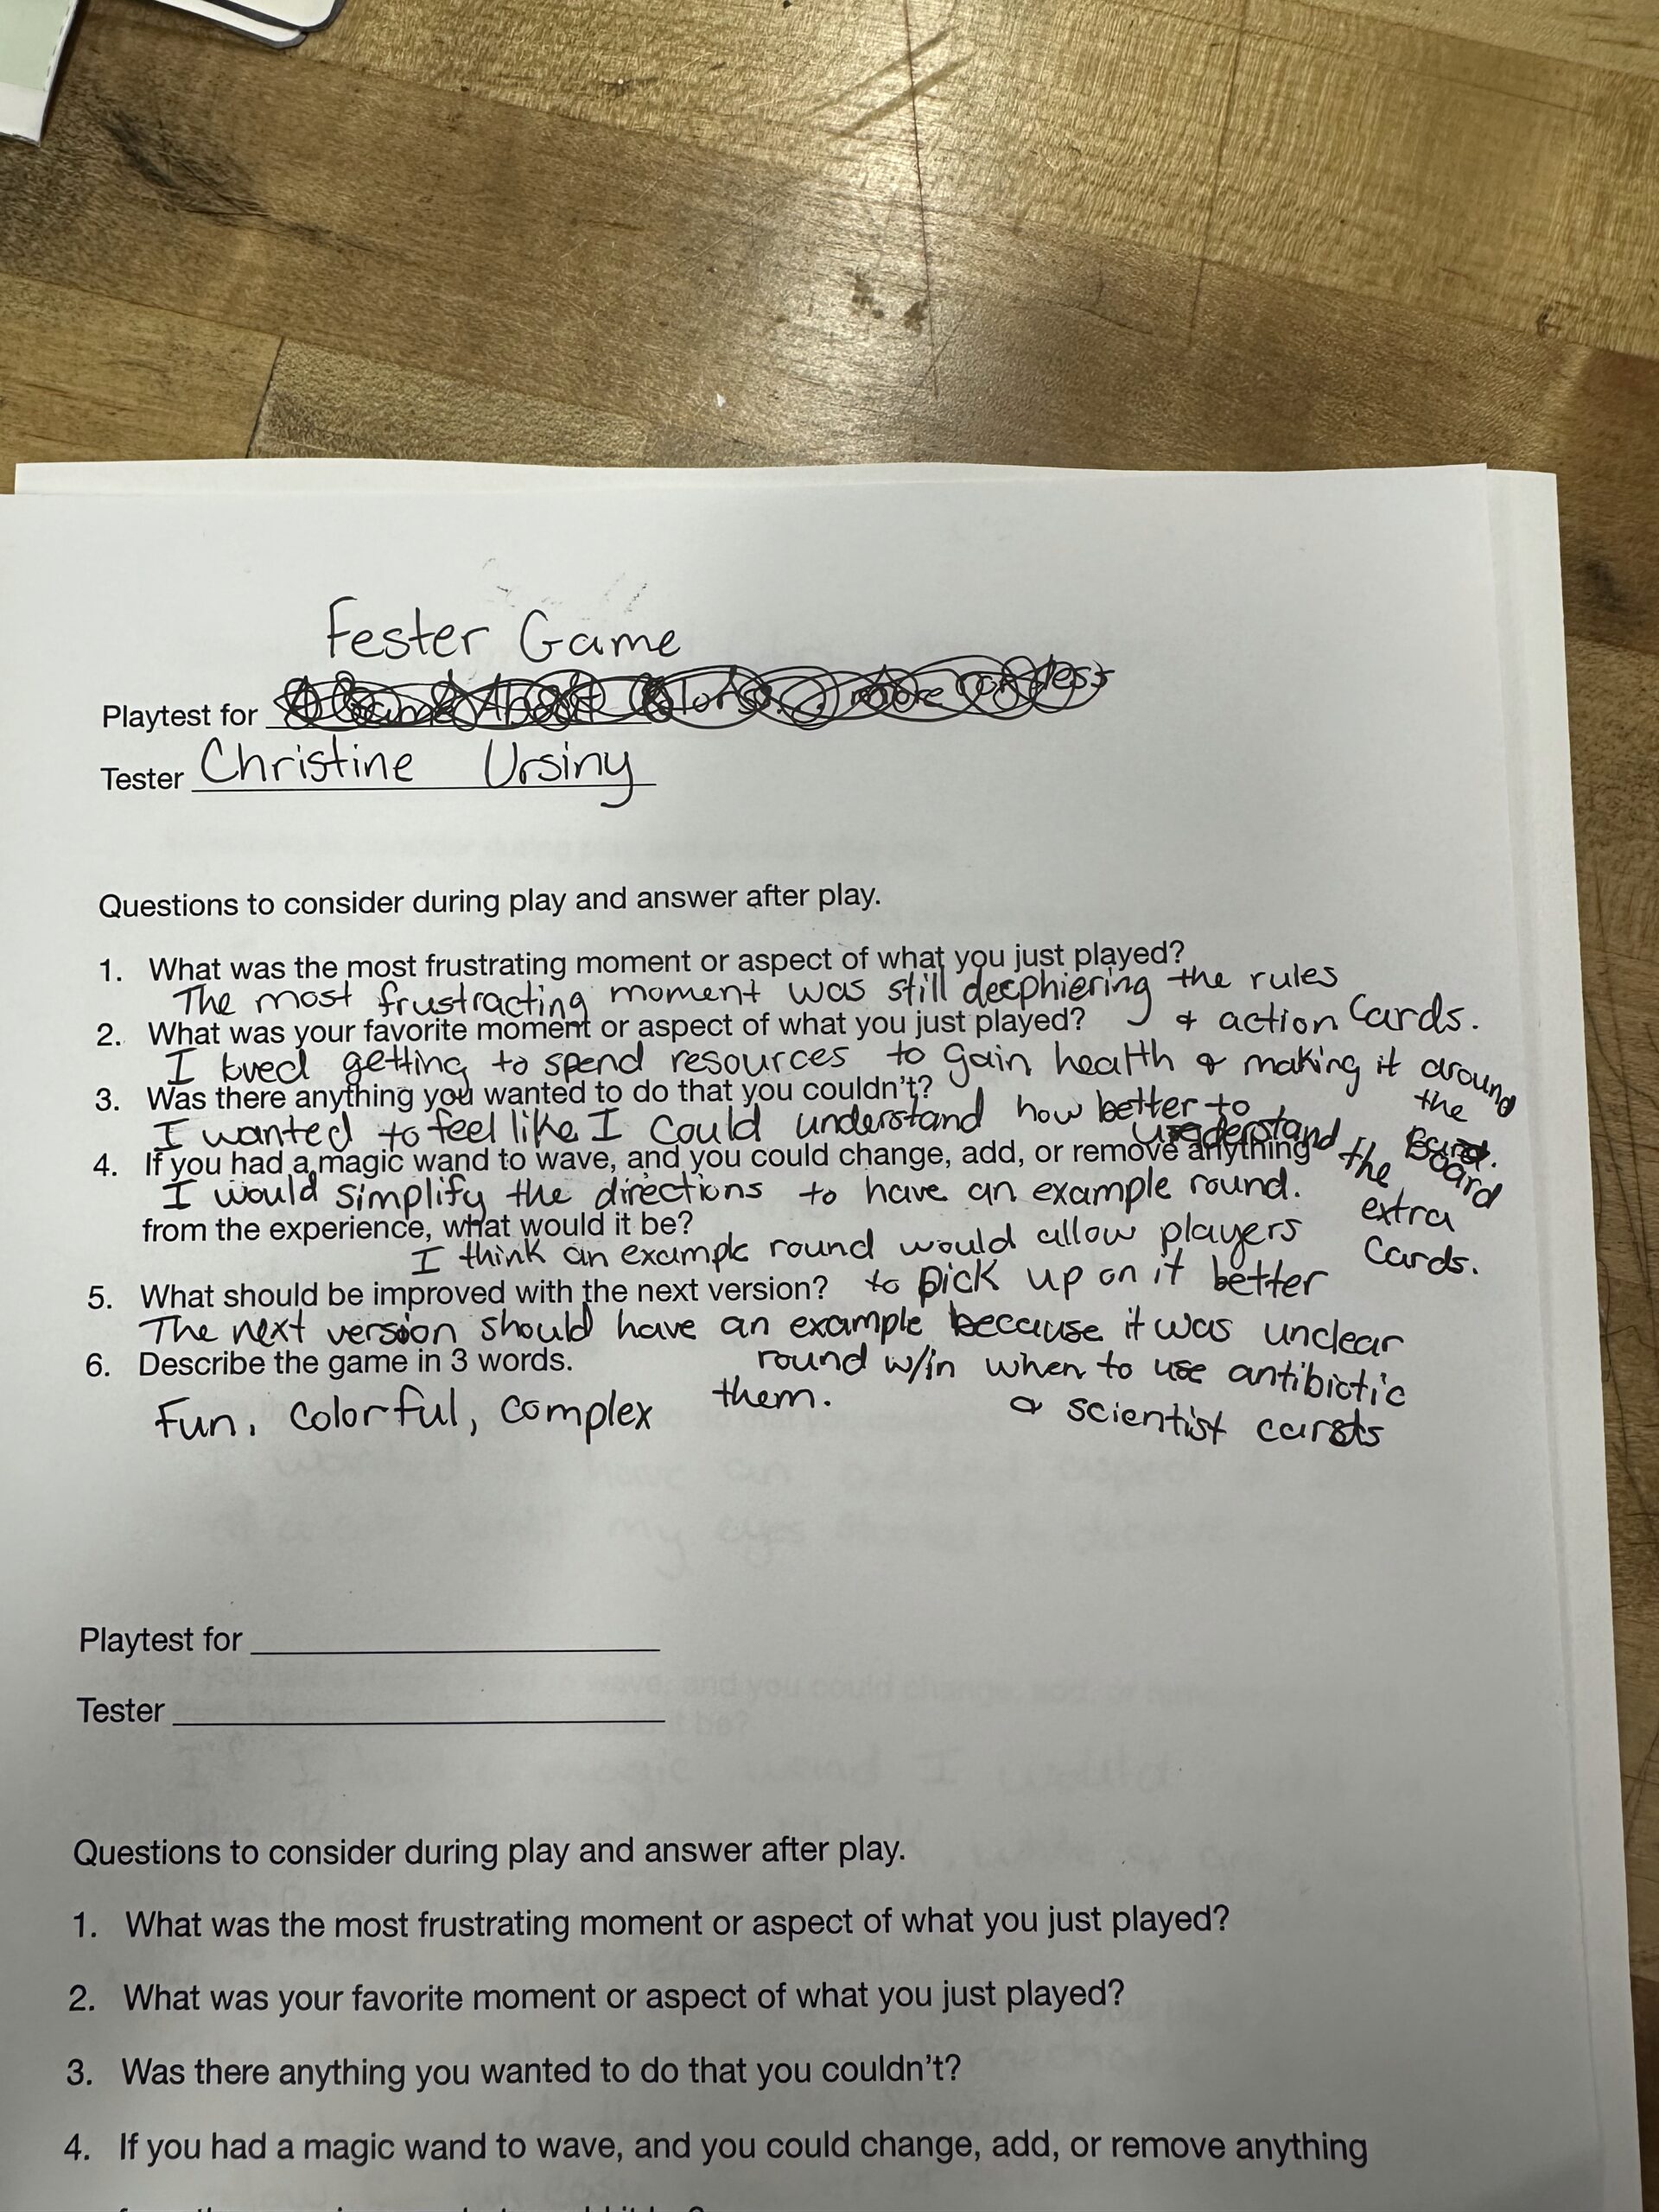 Fester Game
Playtest for
Tester Christine Ursiny
Questions to consider during play and answer after play.
1. What was the most frustrating moment or aspect of what you just played?
The most frustracting moment was still decphiering the rules
& action Cards.
2. What was your favorite moment or aspect of what you just played?
I loved getting to spend resources to gain health & making it around
the
Board
3. Was there anything you wanted to do that you couldn't?
I wanted to feel like I could understand how better to
understand the
extra
Cards.
4. If you had a magic wand to wave, and you could change, add, or remove anything
I would simplify the directions to have an example round.
from the experience, what would it be?
I think an example round would allow players
to pick up on it better
5. What should be improved with the next version?
The next version should have an example because it was unclear
round w/in when to use antibiotic
them. & scientist cards
6. Describe the game in 3 words.
Fun, colorful, complex
Playtest for
Tester
Questions to consider during play and answer after play.
1. What was the most frustrating moment or aspect of what you just played?
2. What was your favorite moment or aspect of what you just played?
3. Was there anything you wanted to do that you couldn't?
4. If you had a magic wand to wave, and you could change, add, or remove anything